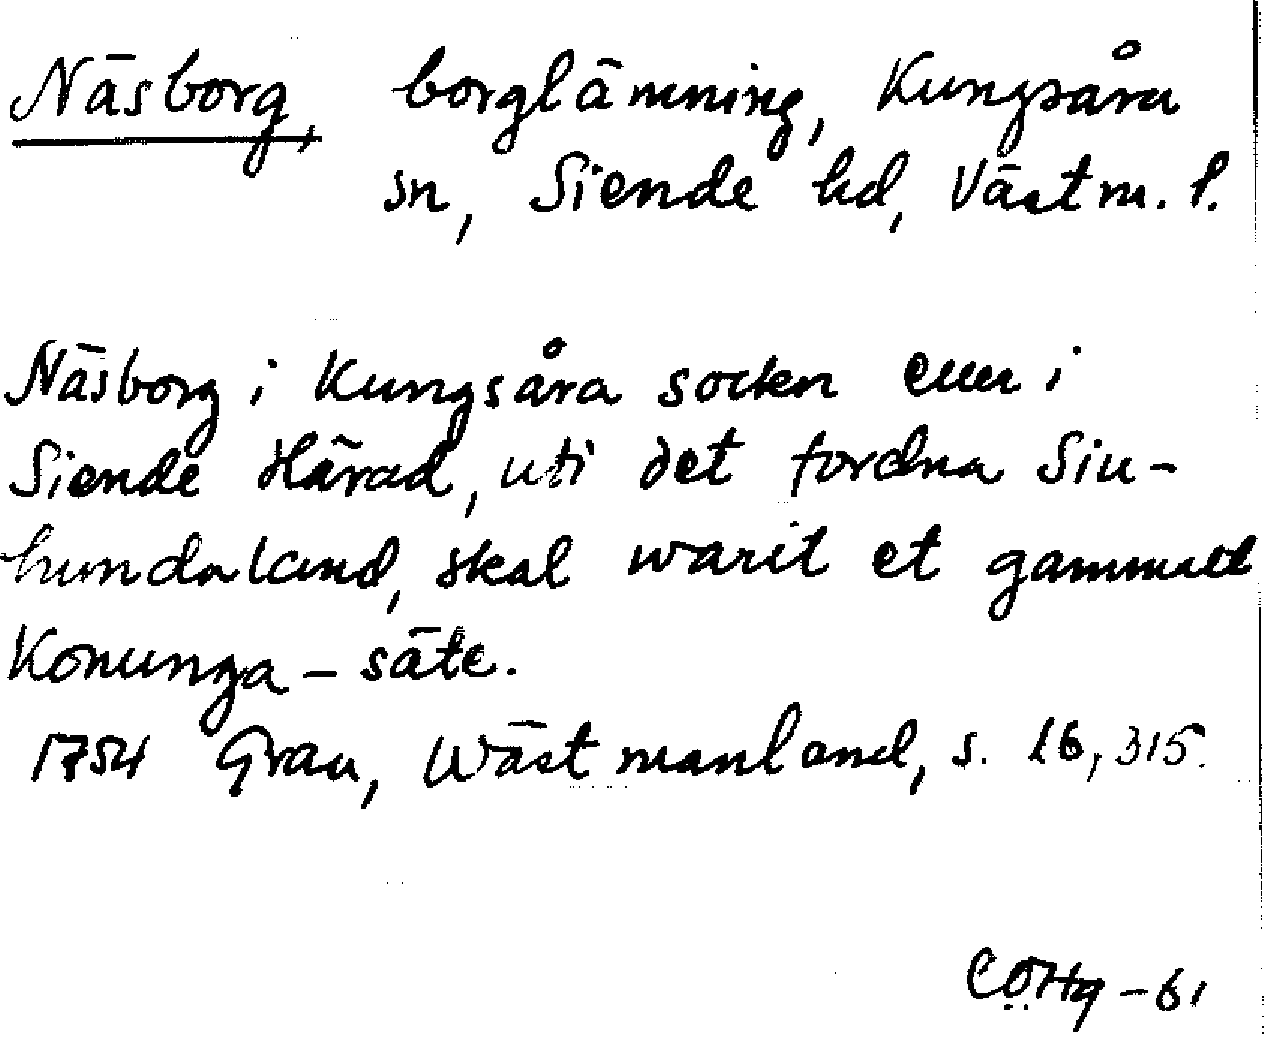 Näsborg, borglämning, Kungsåra
sn, Siende hd, Västm. l.
Näsborg i Kungsåra socken eller i
Siende Härad, uti det fordna Siu-
hundaland, skal warit et gammalt
Konunga-säte.
1754 Grau, Wästmanland, s. 16, 315.
CÖHg -61